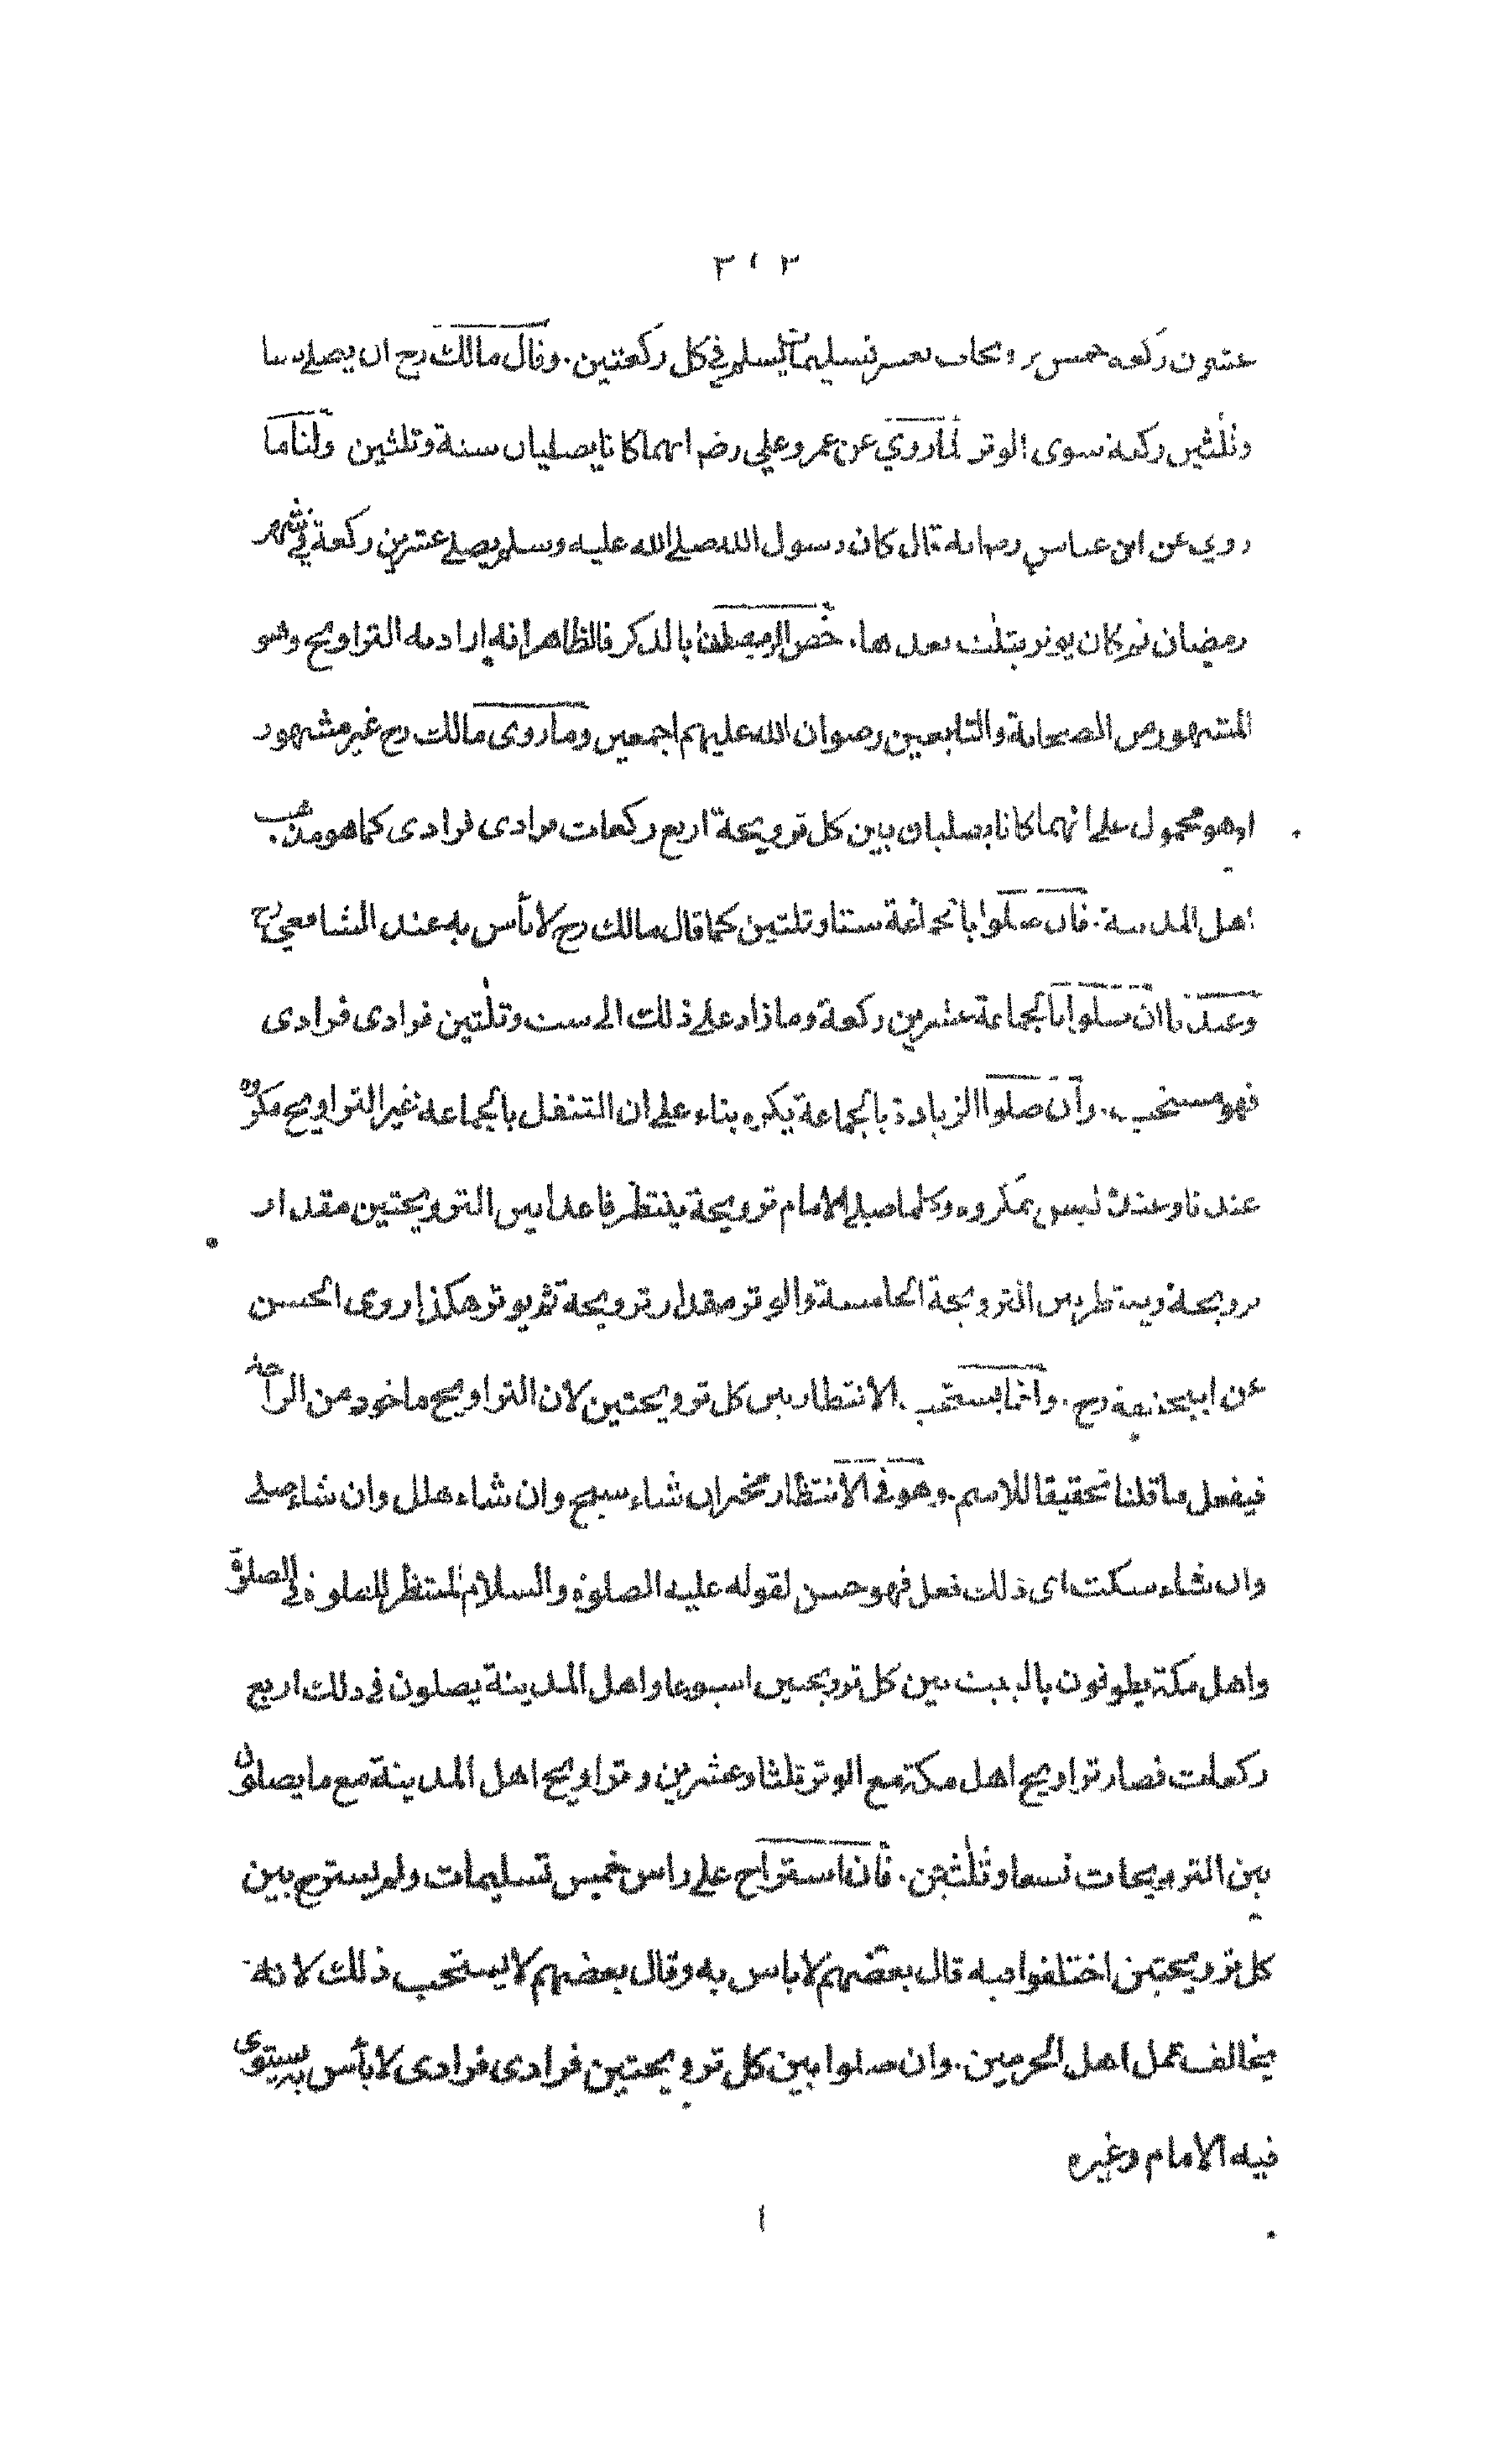 ٣٤٣
عشرون ركعه خمس ترويحات بعشر تسليمات يسلم في كل ركعتين. وقال مالك رح ان يصلي ستا
وثلثين ركعة سوى الوتر لما روي عن عمر وعلي رضه انهما كانا يصليان ستة وثلثين ولنا ما
روي عن ابن عباس رضه انه قال كان رسول الله صلى الله عليه وسلم يصلي عشرين ركعة في شهر
رمضان ثم كان يوتر بثلث بعدها. خص الرمضان بالذكر فالظاهر انه اراد به التراويح وهو
المشهور من الصحابة والتابعين رضوان الله عليهم اجمعين وما روى مالك رح غير مشهور
او هو محمول على انهما كانا يصليان بين كل ترويحة اربع ركعات فرادى فرادى كما هو مذهب.
اهل المدينة. فان صلوا بالجماعة ستا وثلثين كما قال مالك رح لا بأس به عند الشافعي رح
وعندنا ان صلوا بالجماعة عشرين ركعة وما زاد على ذلك الى ست وثلثين فرادى فرادى
فهو مستحب. وان صلوا الزيادة بالجماعة يكره بناء على ان التنفل بالجماعة غير التراويح مكروه
عندنا وعنده ليس بمكروه وكلما صلى الامام ترويحة ينتظر قاعدا بين الترويحتين مقدار
ترويحة وينتظر بين الترويحة الخامسة والوتر مقدار ترويحة ثم يوتر هكذا روى الحسن
عن ابيحنيفة رح. وانما يستحب الانتظار بين كل ترويحتين لان التراويح ماخوذ من الراحة
فيفعل ما قلنا تحقيقا للاسم. وهو في الانتظار مخير ان شاء سبح وان شاء هلل وان شاء صلى
وان شاء سكت اى ذلك فعل فهو حسن لقوله عليه الصلوة والسلام المنتظر للصلوة في الصلوة
واهل مكة يطوفون بالبيت بين كل ترويحتين اسبوعا واهل المدينة يصلون في ذلك اربع
ركعات فصار تراويح اهل مكة مع الوتر ثلثا وعشرين و تراويح اهل المدينة مع ما يصلون
بين الترويحات تسعا وثلثين. فان استراح على راس خمس تسليمات ولم يسترح بين
كل ترويحتين اختلفوا فيه قال بعضهم لا باس به وقال بعضهم لا يستحب ذلك لانه
يخالف عمل اهل الحرمين. وان صلوا بين كل ترويحتين فرادى فرادى لا بأس به يستوى
فيه الامام وغيره